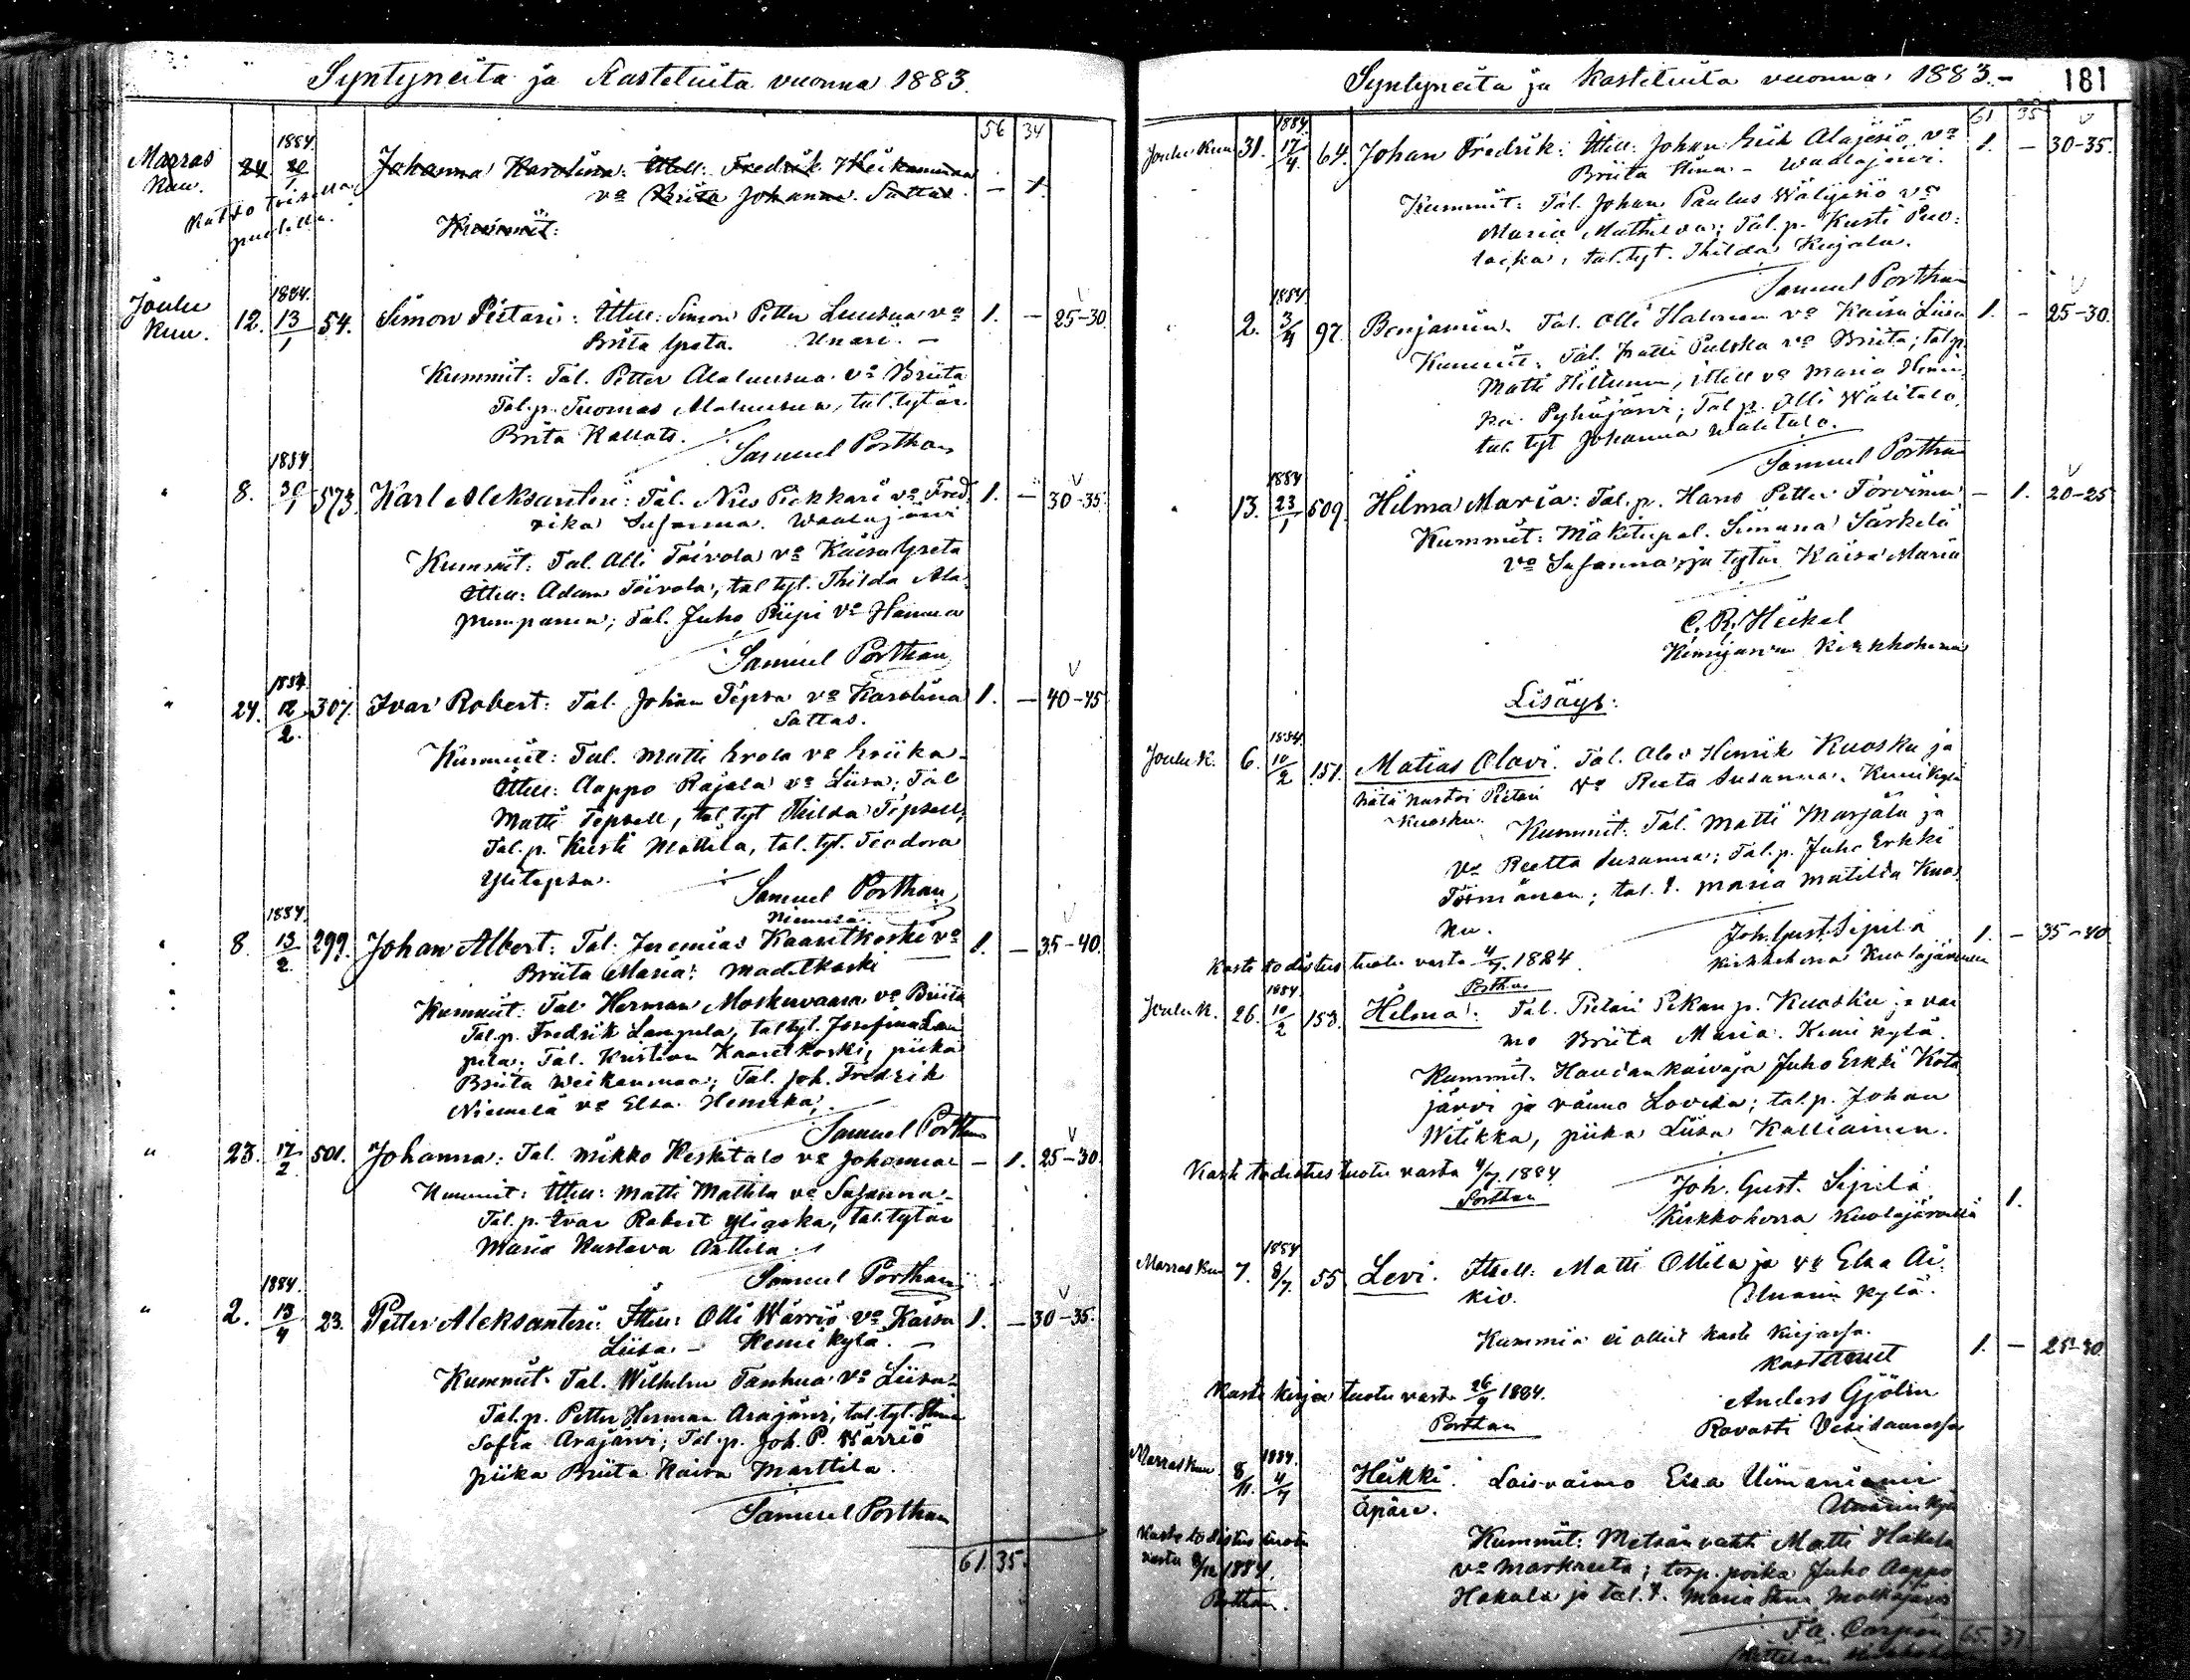 Syntyneitä ja Kastetuita vuonna 1883.
56 34
Marras 1884
Kuu. 24. 20/1 Johanna Karolina: Ittell: Fredrik Keikamaa
Katso toisella va Brita Johanna. Sattas. — 1.
puolella. Kummit:
Joulu 1884.
Kuu. 12. 13/1 54. Simon Pietari: Ittell: Simon Petter Luusua va 1. — 25-30
Brita Greta. Unari. —
Kummit: Tal. Petter Alaluusua va Briita
Tal.p. Tuomas Alaluusua, tal. tytär
Brita Kallats.
Samuel Porthan
1884
" 8. 30/1 573 Karl Aleksanteri: Tal. Nils Piekkari va Fred- 1. — 30-35
rika Susanna. Waalajärvi
Kummit: Tal. Olli Toivola va Kaisa Greta
Ittell: Adam Toivola, tal. tyt. Thilda Ala-
pumpanen; Tal. Juho Riipi va Hanna
Samuel Porthan
1884
" 24. 12/2 307. Ivar Robert: Tal. Johan Tepsa va Karolina 1. — 40-45
Sattas.
Kummit: Tal. Matti Erola va Eriika
Ittell: Aappo Rajala va Liisa; Tal
Matti Tepsell, tal. tyt Thilda Tepsell,
Tal.p. Kusti Mattila, tal. tyt. Teodora
Ylitepsa.
Samuel Porthan
1884. Niemelä
" 8 13/2 299. Johan Albert: Tal. Jeremias Kaaretkoski va 1. — 35-40.
Briita Maria: Madetkoski
Kummit: Tal Herman Moskuvaara va Briita
Tal.p. Fredrik Lampela, tal tyt. Josefina Lam
pela; Tal. Kristian Kaaretkoski, piika
Briita Weikanmaa; Tal. Joh. Fredrik
Niemelä va Elsa Henrika;
Samuel Porthan
" 23. 17/2 501. Johanna: Tal. Mikko Keskitalo va Johanna — 1. 25-30.
Kummit: Ittell: Matti Mattila va Susanna
Tal.p. Ivar Robert Ylijoka, tal. tytär
Maria Kustava Anttila
Samuel Porthan
1884.
" 2. 13/4 23. Petter Aleksanteri: Ittell: Olli Wärriö va Kaisa 1. — 30-35.
Liisa — Kemi kylä. —
Kummit. Tal. Wilhelm Tanhua va Liisa
Tal.p. Petter Herman Arajärvi, tal. tyt. Stina
Sofia Arajärvi; Tal.p. Joh. P. Wärriö
piika Briita Kaisa Marttila.
Samuel Porthan
61. 35.
Syntyneitä ja kastetuita vuonna 1883.— 181
61 35
1884
Joulu Kuu 31. 17/4. 64. Johan Fredrik: Ittell: Johan Erik Alajesiö va 1. — 30-35.
Briita Stina — Waalajärvi.
Kummit: Tal. Johan Paulus Wäliesiö va
Maria Mathilda; Tal.p. Kusti Puo-
lacka, tal. tyt. Thilda Kujala.
Samuel Porthan
1884.
" 2. 3/4 97. Benjamin. Tal. Olli Halonen va Kaisa Liisa 1. — 25-30.
Kummit: Tal. Matti Pulska va Briita; tal.p.
Matti Hiltunen, ittell va Maria Henri
ka. Pyhäjärvi; Tal.p. Olli Wälitalo,
tal. tyt Johanna Wälitalo.
Samuel Porthan
1884
" 13. 23/1 509. Hilma Maria: Tal.p. Hans Petter Torvinen — 1. 20-25
Kummit: Mäkitupal. Simuna Särkelä
va Susanna, ja tytär Kaisa Maria
C. R. Heikel
Kemijärven Kirkkoherra
Lisäys:
1884.
Joulu K. 6. 10/2 151. Matias Olavi. Tal. Olov Henrik Kuosku ja
va Reeta Susanna. Kemi kylä
Kuosku. Kummit: Tal. Matti Marjala ja
va Reetta Susanna; Tal.p. Juho Erkki
Törmänen; tal. t. Maria Matilda Kuos-
ku.
Joh. Gust. Sipilä 1. — 35-40
Kaste todistus tuotu vasta 4/7. 1884 kirkkoherra Kuolajärvellä
Porthan
1884.
Joulu K. 26. 10/2 153. Hilma: Tal. Pietari Pekan p. Kuosku ja vai
mo Briita Maria. Kemi kylä.
Kummit: Haudankaivaja Juho Erkki Kota
järvi ja vaimo Lovisa; tal.p. Johan
Witikka, piika Liisa Kalliainen.
Kaste todistus tuotu vasta 4/7 1884
Porthan Joh. Gust. Sipilä
Kirkkoherra Kuolajärvellä 1.
1884
Marras Kuu 7. 8/7. 55 Levi. Ittell: Matti Ollila ja va Elsa Ai-
kio. Unarin kylä.
Kummia ei ollut kaste kirjassa.
kastanut 1. — 25-30.
Kaste kirja tuotu vasta 26/9 1884. Anders Gjölin
Porthan Rovasti Vesisaaressa
Marras Kuu. 1884.
8/11. 4/7 Heikki. Loisvaimo Elsa Uimaniemi
Äpärä. Unarin kylä
Kaste todistus tuotu Kummit: Metsänvahti Matti Hakala
vasta 8/12 1884. va Markreeta; torp. poika Juho Aappo
Porthan. Hakala ja tal. t. Maria Stina Molkojärvi
Fa. Carpén 65. 37
Kittilän Kirkkoherra